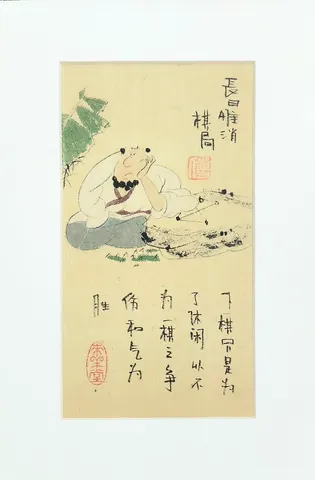 長日惟消
棋局
下棋只是为
了休闲以不
为一棋之争
伤和气为
胜